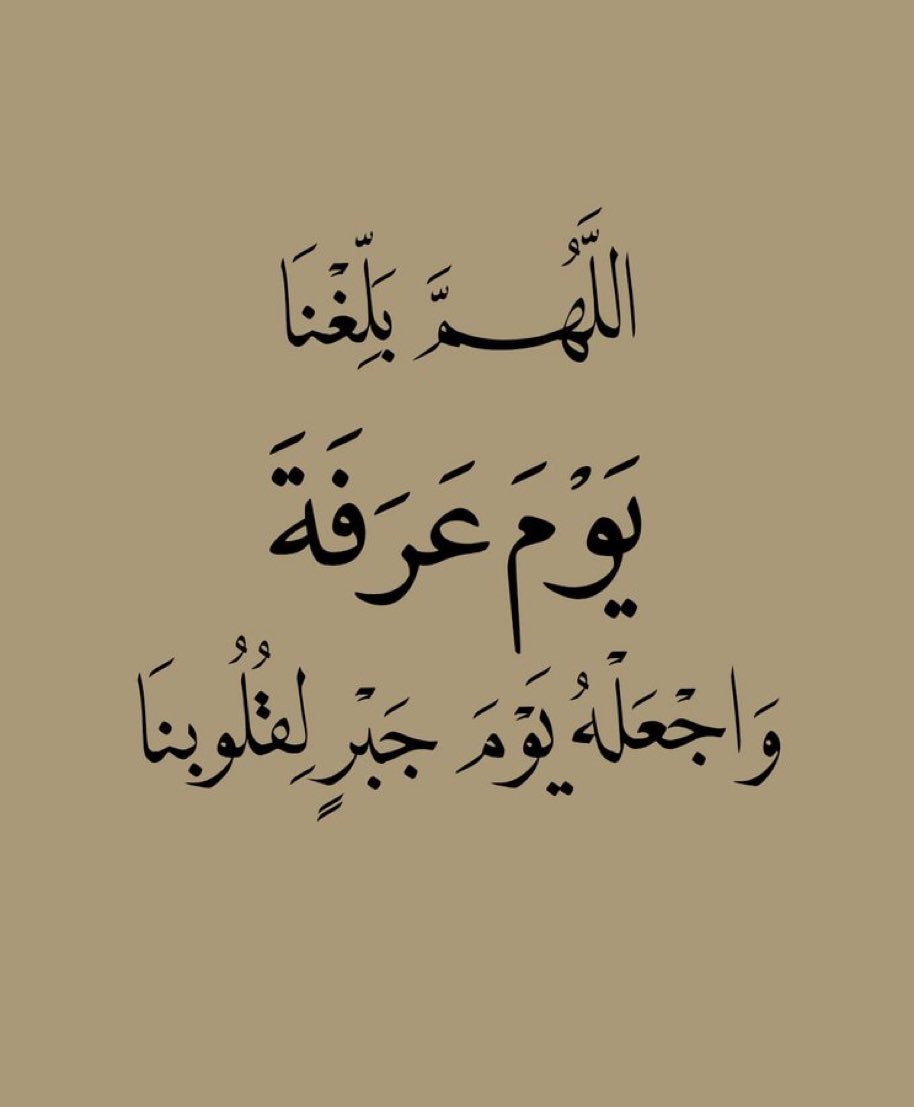 اللَّهُمَّ بَلِّغْنَا
يَوْمَ عَرَفَةَ
وَاجْعَلْهُ يَوْمَ جَبْرٍ لِقُلُوبنَا